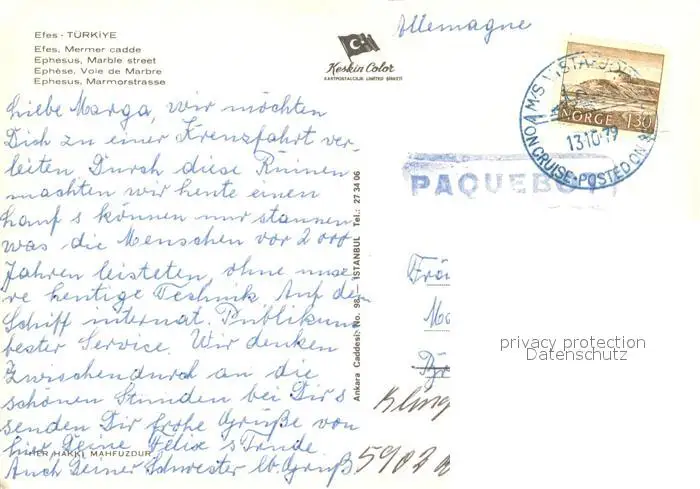 Efes - TÜRKİYE
Efes, Mermer cadde
Ephesus, Marble street
Ephèse, Voie de Marbre
Ephesus, Marmorstrasse
Keskin Color
KARTPOSTALCILIK LIMITED ŞIRKETI
Allemagne
NORGE 130
M/S VISTAFJORD
13·10·79
ON CRUISE·POSTED ON
PAQUEBOT
Liebe Marga, wir möchten
Dich zu einer Kreuzfahrt ver-
leiten. Durch diese Ruinen
machten wir heute einen
Lauf & können nur staunen
was die Menschen vor 2000
Jahren leisteten, ohne unse-
re heutige Technik. Auf dem
Schiff internat. Publikum
bester Service. Wir denken
zwischendurch an die
schönen Stunden bei Dir &
senden Dir frohe Grüße von
hier Deine Felix & Trude.
Auch Deiner Schwester lb. Gruß
HAKKI MAHFUZDUR
Ankara Caddesi: No. 98 İSTANBUL Tel.: 27 34 06
Frä
Kling
5902
privacy protection
Datenschutz